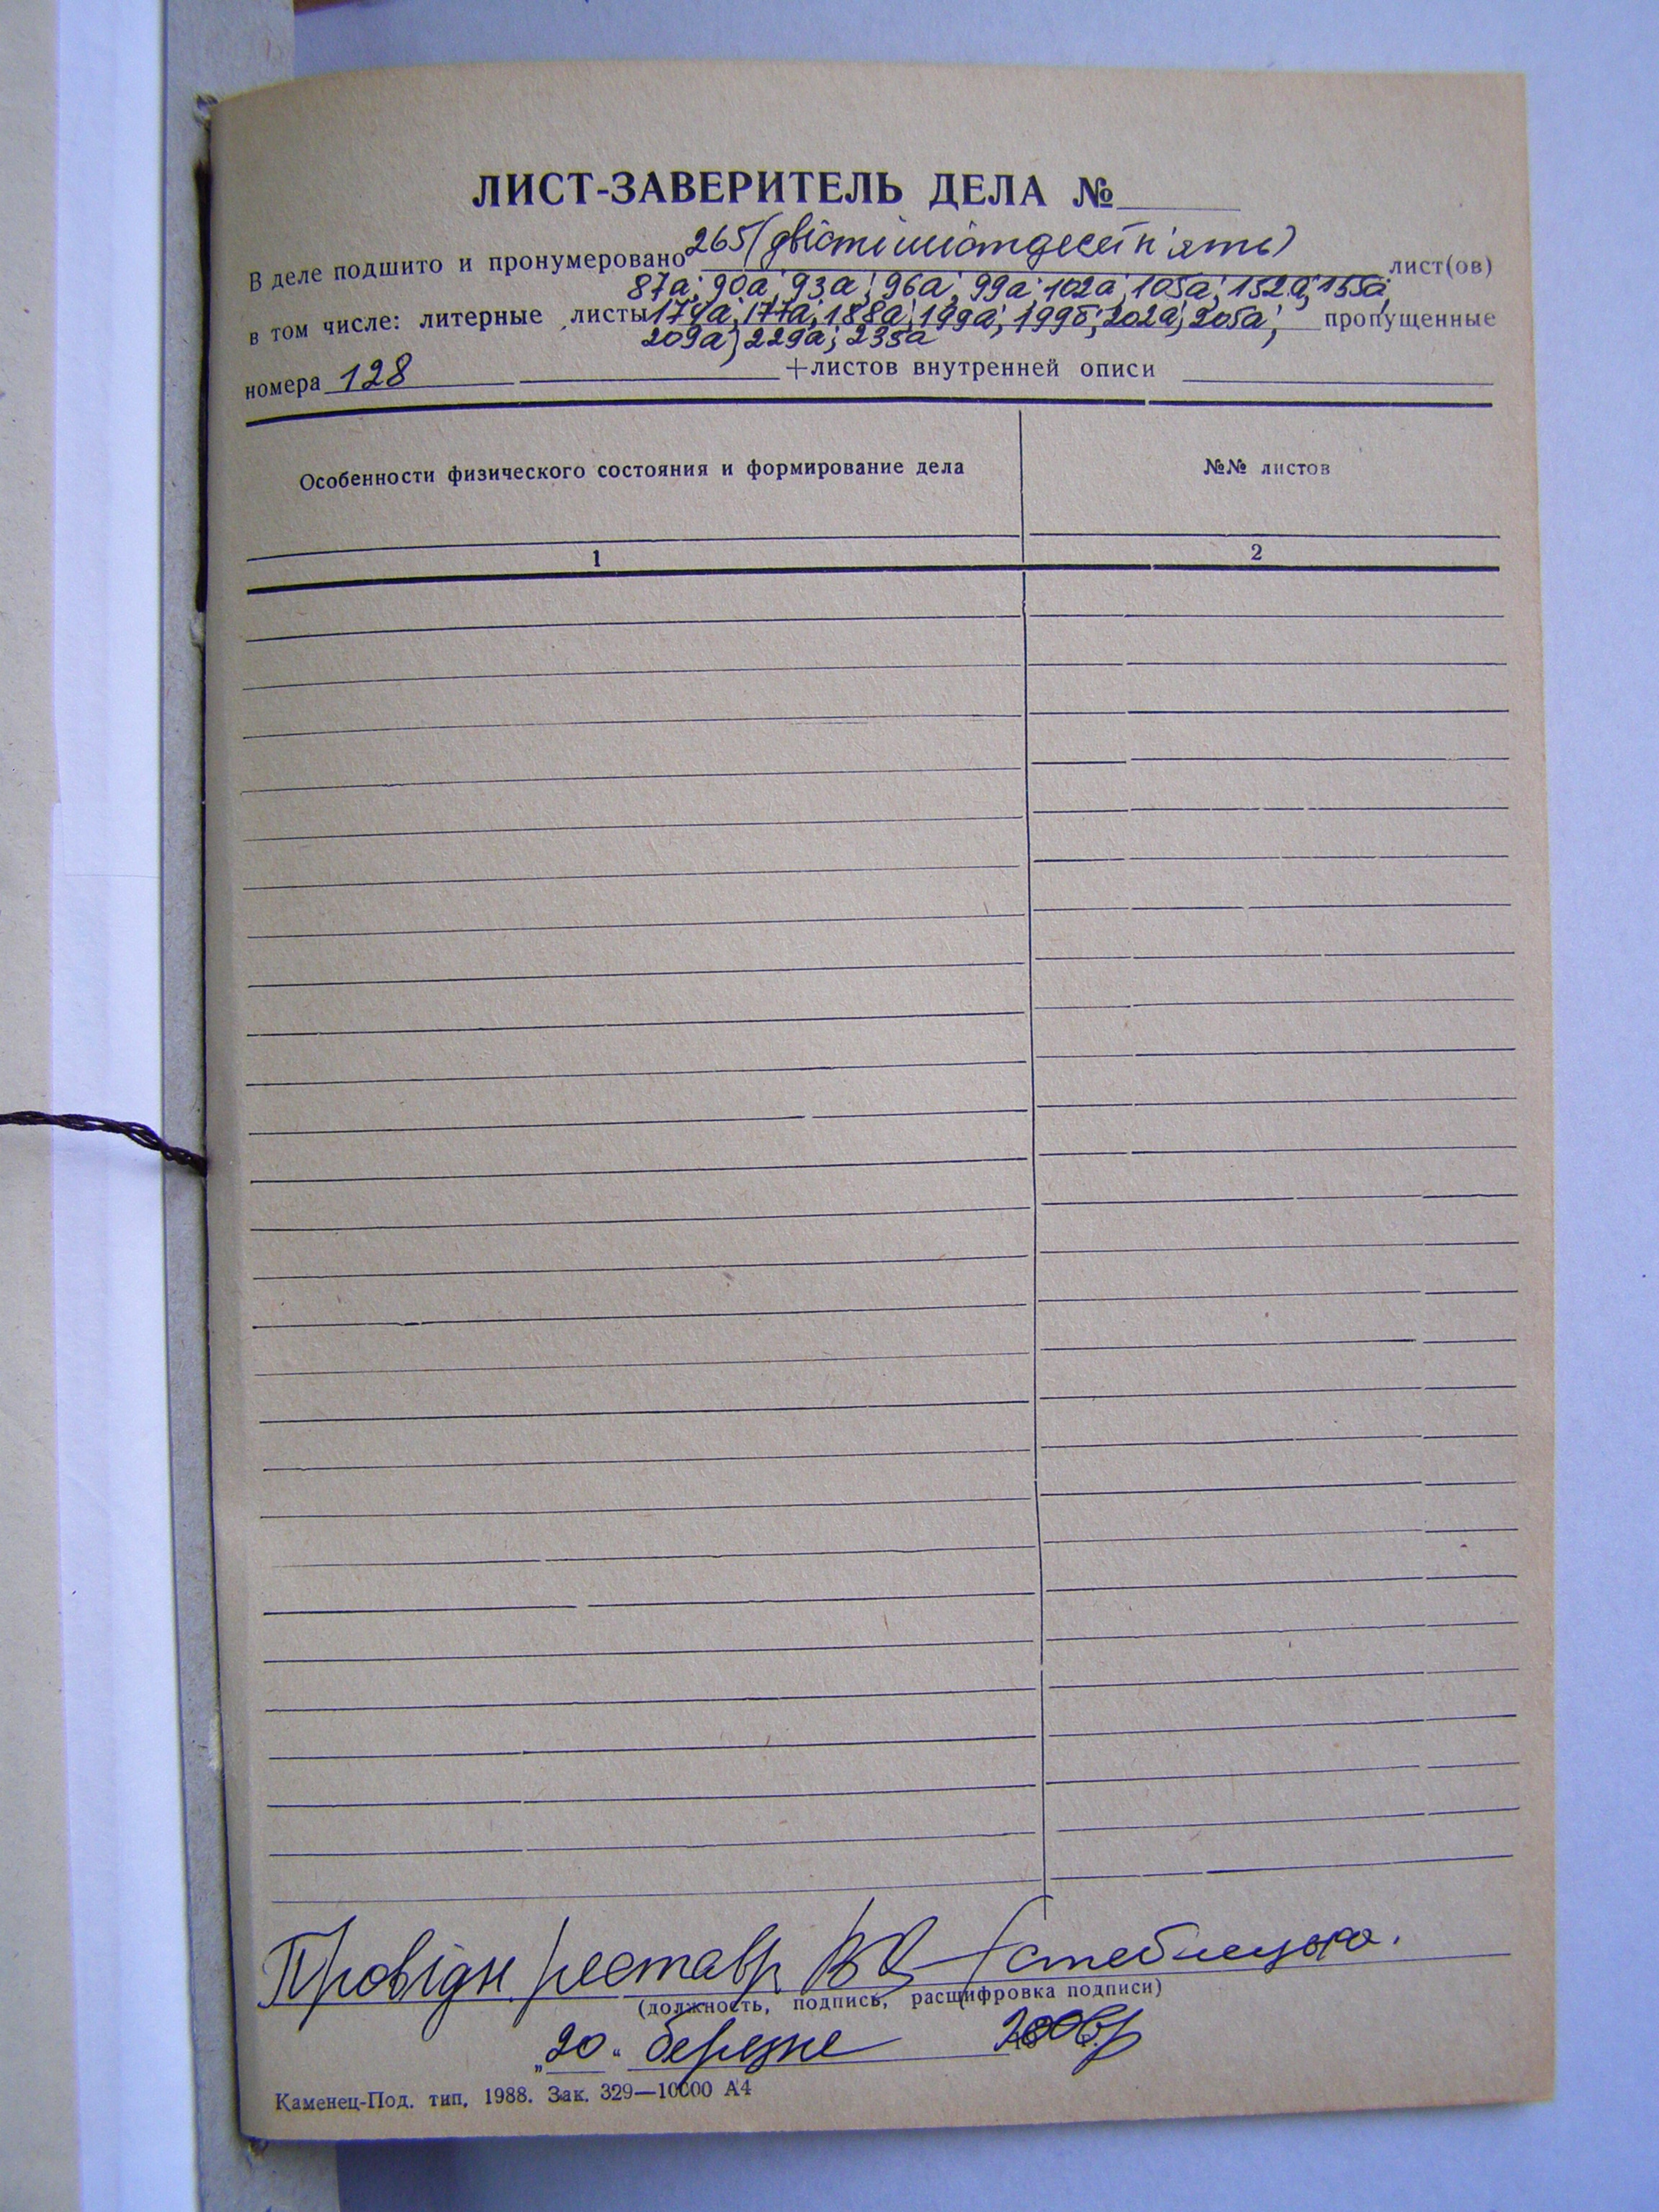 ЛИСТ-ЗАВЕРИТЕЛЬ ДЕЛА №
В деле подшито и пронумеровано 265 (двісті шістдесят п'ять) лист(ов)
87а; 90а; 93а; 96а; 99а; 102а; 105а; 152а; 155а;
в том числе: литерные листы 174а; 177а; 188а; 199а; 199б; 202а; 205а; пропущенные
209а; 229а; 235а
номера 128 +листов внутренней описи
Особенности физического состояния и формирование дела №№ листов
1 2
Провідн. реставр
(должность, подпись, расшифровка подписи)
„20“ березня 2006р
Каменец-Под. тип, 1988. Зак. 329—10000 А4